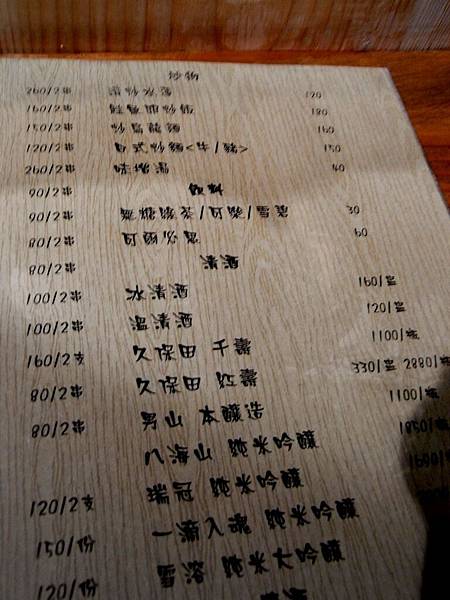 260/2串
160/2串
150/2串
120/2串
260/2串
90/2串
90/2串
80/2串
80/2串
100/2串
100/2串
160/2支
80/2串
80/2串
120/2支
150/份
120/份
炒物
120
180
160
150
味噌湯 40
飲料
無糖綠茶/可樂/雪碧 30
可爾必思 60
清酒
冰清酒 160/壺
溫清酒 120/壺
久保田 千壽 1100/瓶
久保田 紅壽 330/壺 2880/瓶
男山 本釀造 1100/瓶
八海山 純米吟釀 1850/瓶
瑞冠 純米吟釀
一滴入魂 純米吟釀
雪溶 純米大吟釀